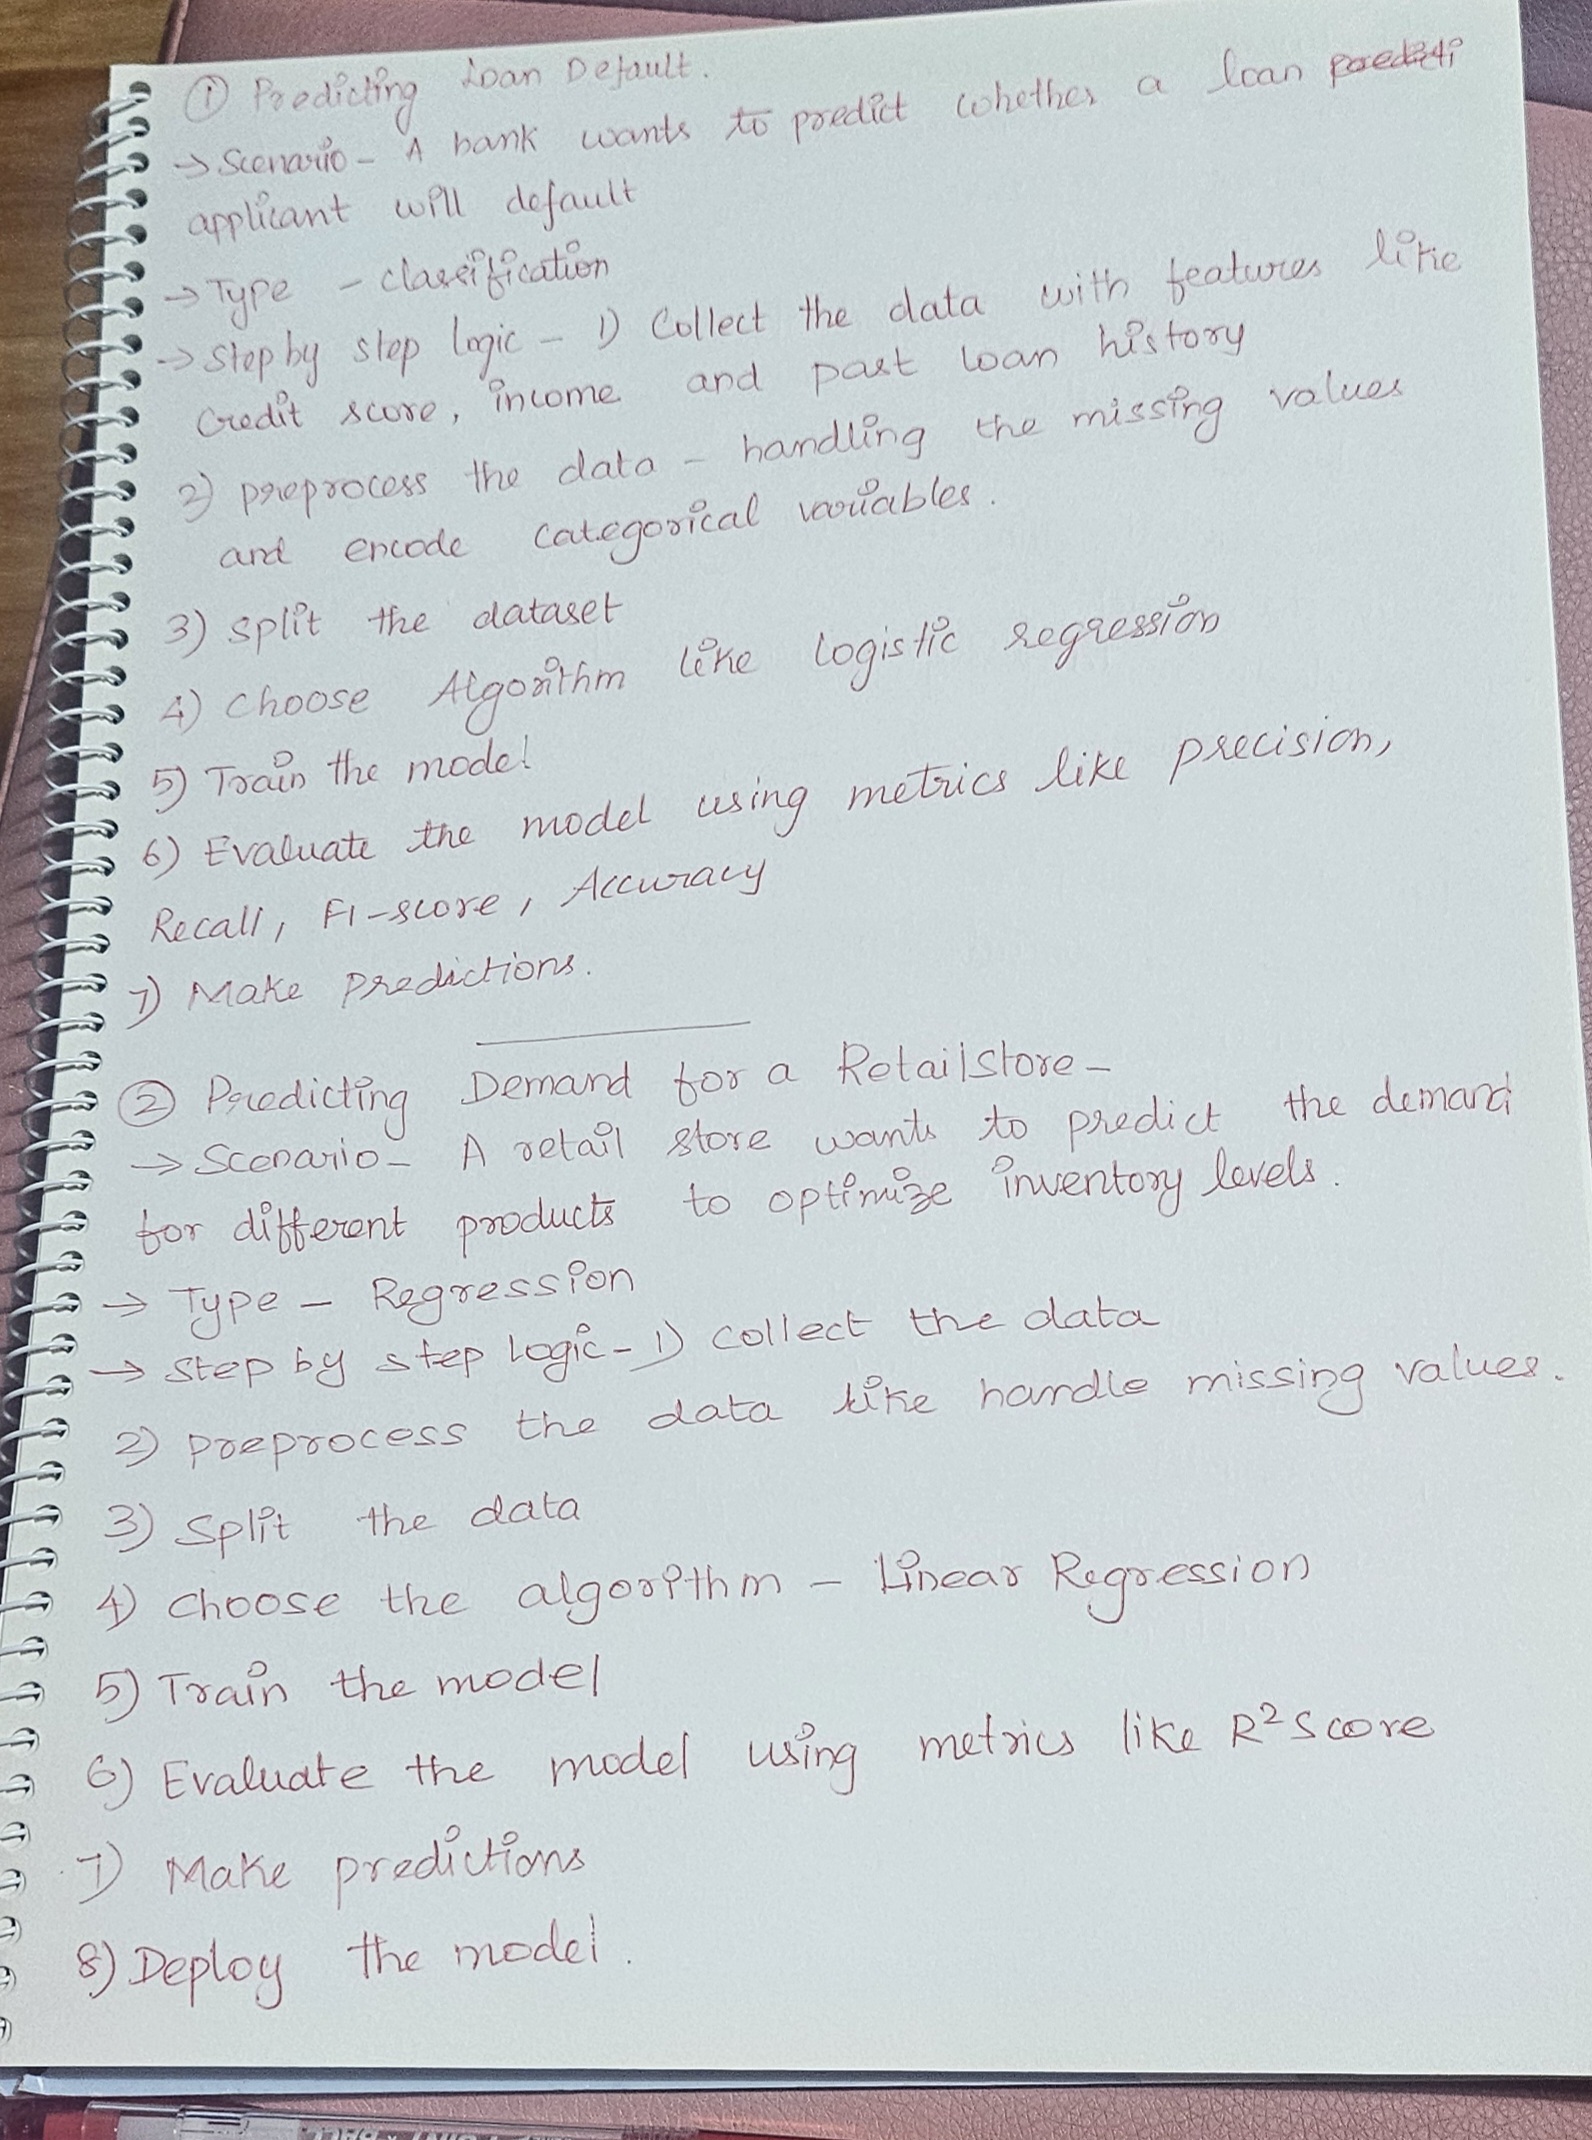 ① Predicting Loan Default.
→ Scenario - A bank wants to predict whether a loan
applicant will default
→ Type - classification
→ Step by step logic - 1) Collect the data with features like
Credit score, income and past loan history
2) preprocess the data - handling the missing values
and encode categorical variables.
3) split the dataset
4) choose Algorithm like logistic regression
5) Train the model
6) Evaluate the model using metrics like precision,
Recall, F1-score, Accuracy
7) Make predictions.
② Predicting Demand for a Retailstore -
→ Scenario - A retail store wants to predict the demand
for different products to optimize inventory levels.
→ Type - Regression
→ Step by step logic - 1) collect the data
2) preprocess the data like handle missing values.
3) split the data
4) choose the algorithm - Linear Regression
5) Train the model
6) Evaluate the model using metrics like R² Score
7) Make predictions
8) Deploy the model.